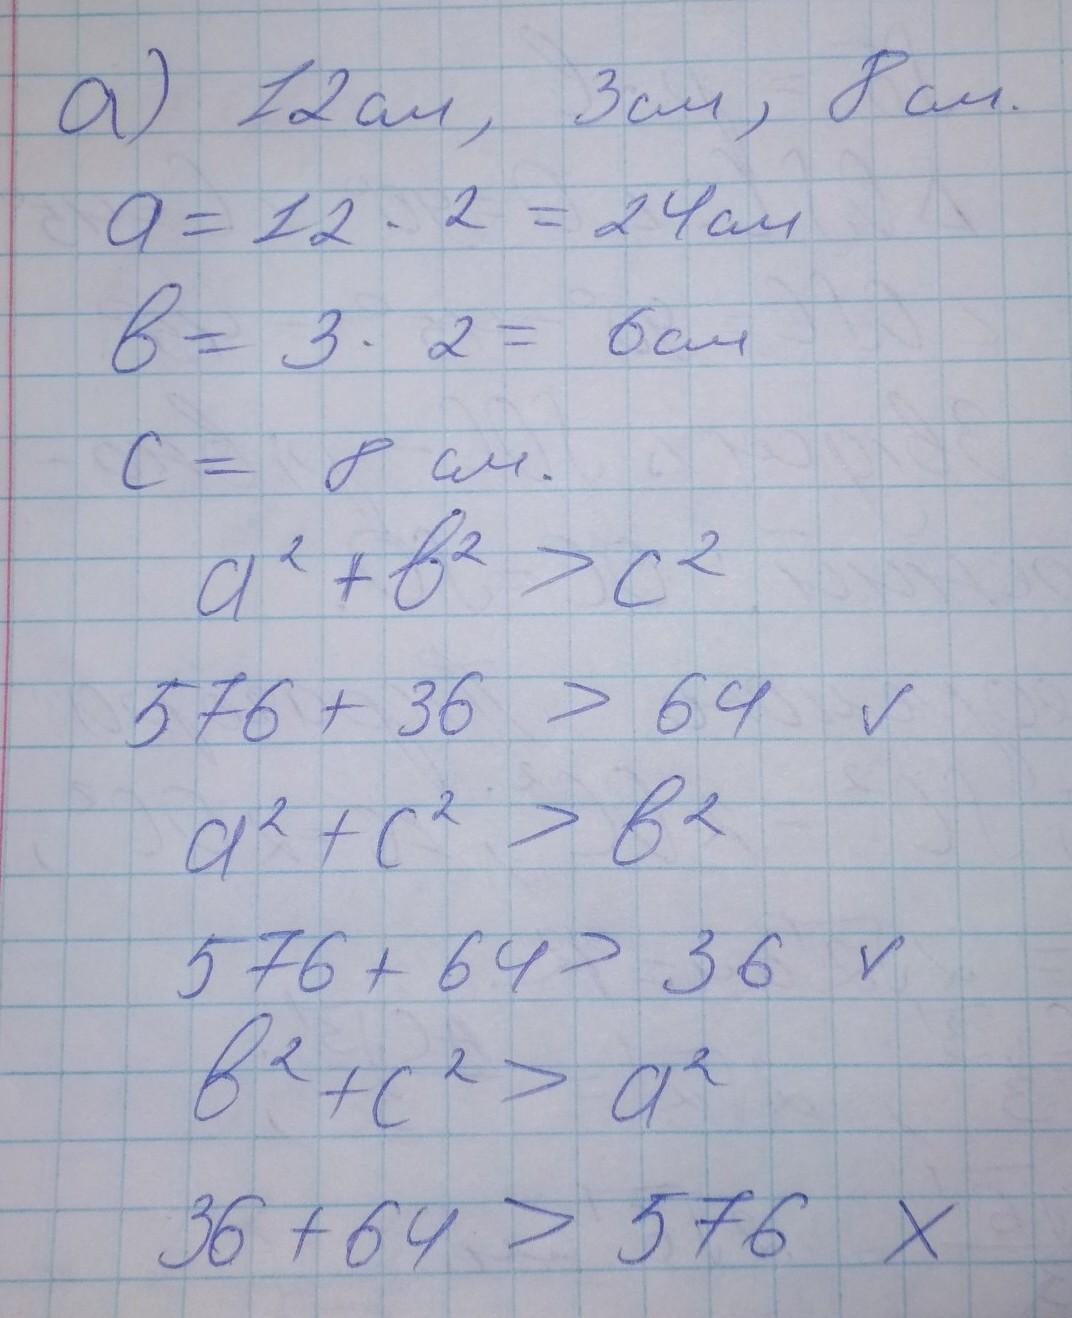 а) 12см, 3см, 8см.
a = 12 · 2 = 24см
в = 3 · 2 = 6см
с = 8 см.
a² + в² > c²
576 + 36 > 64 ✓
a² + c² > в²
576 + 64 > 36 ✓
в² + c² > a²
36 + 64 > 576 X